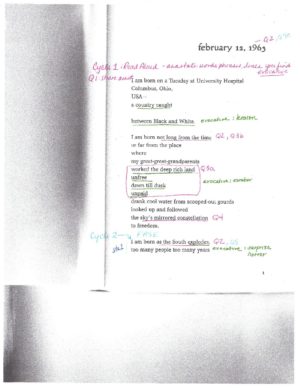 - Q2,
february 12, 1963
Cycle 1 - Read Aloud - annotate words, phrases, lines you find
Q1 evocative
I am born on a Tuesday at University Hospital
Columbus, Ohio,
USA—
a country caught
between Black and White. evocative:
I am born not long from the time Q2, Q3b
or far from the place
where
my great-great-grandparents
worked the deep rich land Q3a
unfree
dawn till dusk evocative: somber
unpaid
drank cool water from scooped-out gourds
looked up and followed
the sky's mirrored constellation Q4
to freedom.
Cycle 2 —
I am born as the South explodes, Q2,
too many people too many years evocative: surprise
horror
1